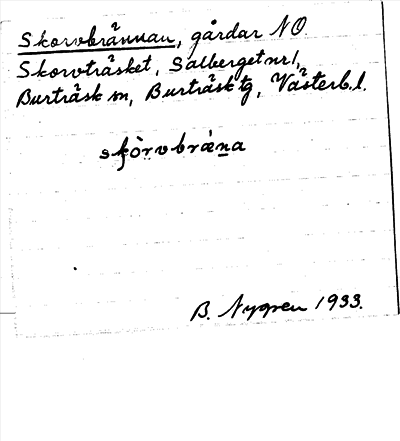 Skorvbrännan, gårdar NO
Skorvträsket, Salberget nr 1,
Burträsk sn, Burträsk tg, Västerb. l.
skòrvbrána
B. Nygren 1933.